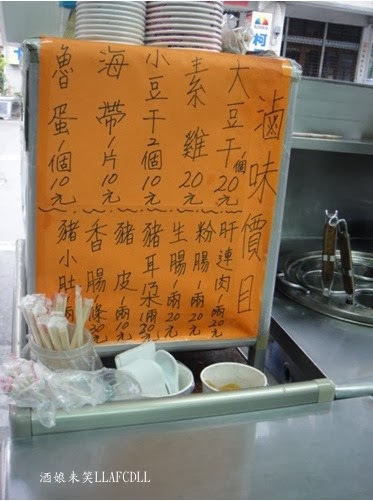 滷味價目
大豆干個20元
素雞20元
小豆干2個10元
海帶1片10元
魯蛋1個10元
肝連肉1兩20元
粉腸1兩20元
生腸1兩20元
豬耳朶1兩20元
豬皮1兩10元
香腸1條30元
豬小肚1兩
柯
酒娘未笑LLAFCDLL